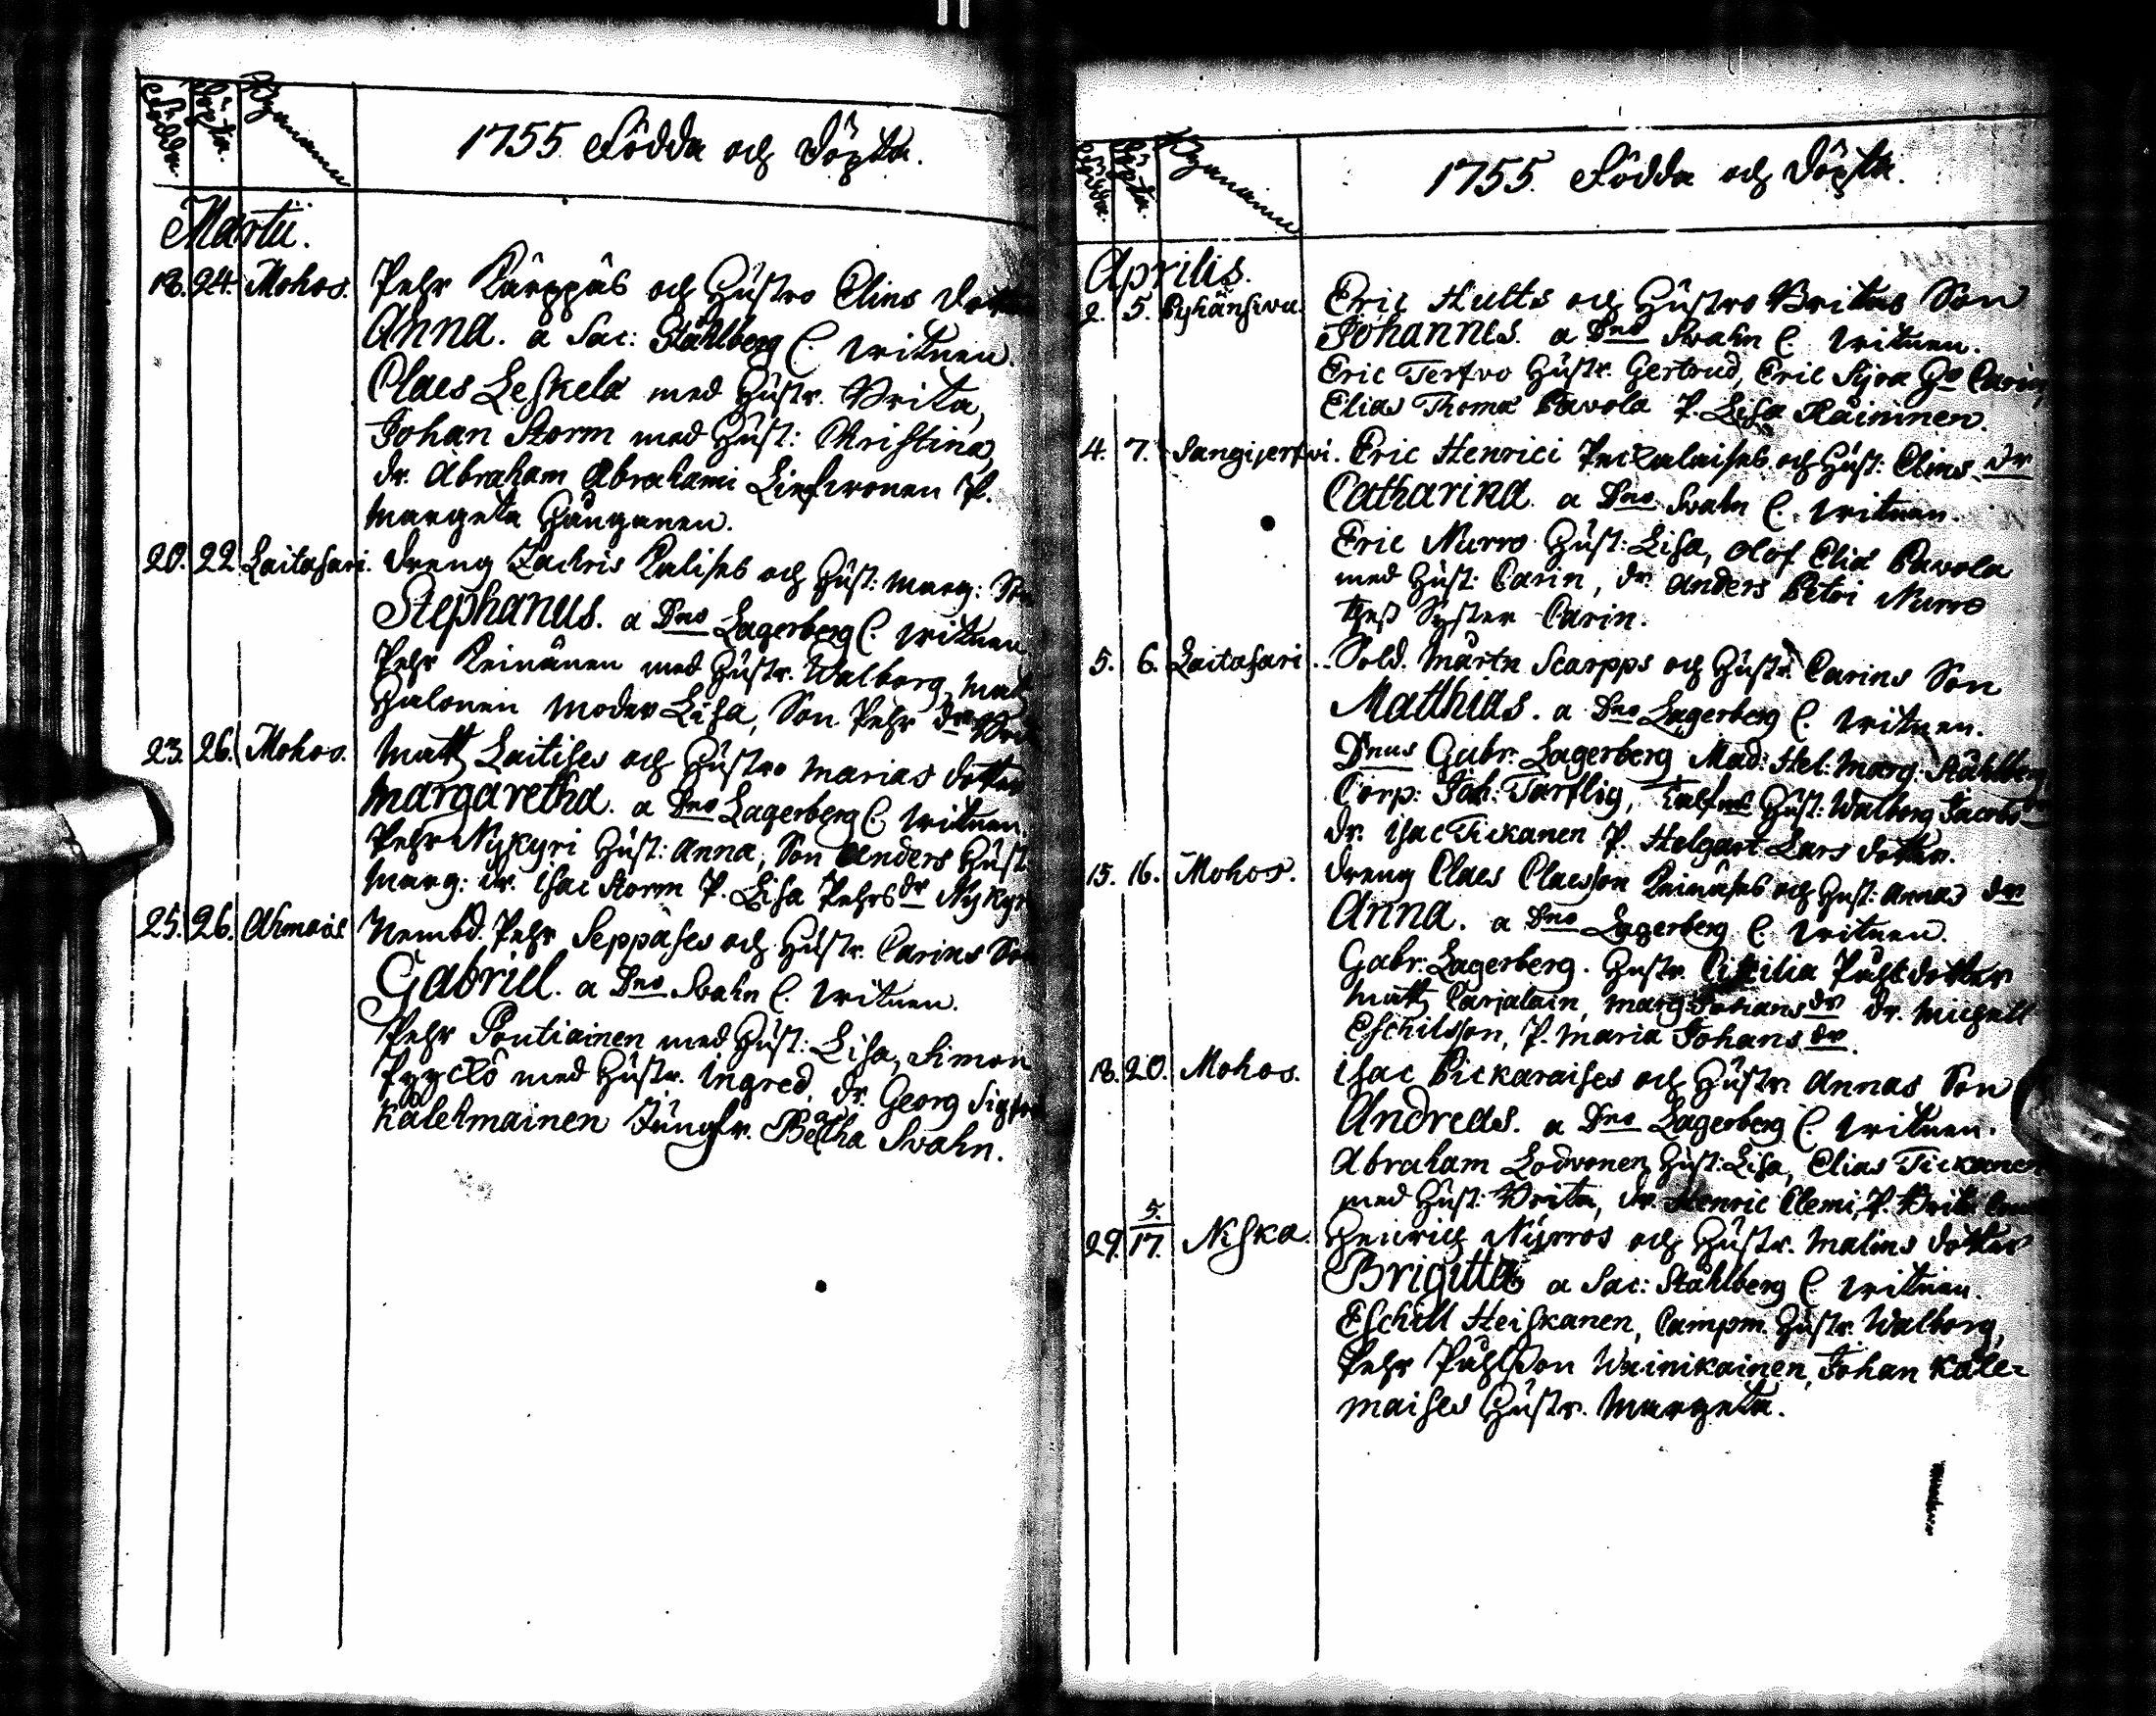 Födda
Döpta.
Bynamn
1755. Födda och Döpta.
Martii.
18. 24. Mohos. Pehr Kärppäs och Hustro Elins dotter
Anna. a Sac: Ståhlberg C. witnen.
Claes Leskelä med Hustr. Brita,
Johan Storm med Hust: Christina,
dr. Abraham Abrahami Liefwonen P.
Margeta Haunganen.
20. 22. Laitasari. Dreng Zachris Kalises och Hust: Marg: Son
Stephanus. a Dno Lagerberg C. witnen
Pehr Keinänen med Hustr. Walborg, Matts
Halonen Moder Lisa, Son Pehr dr
23. 26. Mohos. Matts Laitises och Hustro Marias dotter
Margaretha. a Dno Lagerberg C. witnen.
Pehr Nykyri Hust: Anna, Son Anders Hust
Marg: dr. Isac Storm P. Lisa Pehrs dr Nykyri
25. 26. Ahmais Nembd. Pehr Seppäses och Hustr. Carins Son
Gabriel. a Dno Svahn C. witnen.
Pehr Pontiainen med Hust: Lisa, Simon
Pyyckö med Hustr. Ingred, dr. Georg Sigfri
Kälehmainen Jungfr. Beatha Svahn.
Födda.
Döpta.
Bynamn
1755. Födda och Döpta.
Aprilis.
2. 5. Pyhänsivu. Eric Hults och Hustro Britas Son
Johannes. a Dno Svahn C. witnen.
Eric Terfvo Hustr. Gertrud, Eric Sipra Ho Carin,
Elias Thomæ Pavola P. Lisa Räininen.
4. 7. Sangijerfvi. Eric Henrici Peckalaises och Hust: Elins dr
Catharina a Dno Svahn C. witnen.
Eric Nurro Hust: Lisa, Olof Eliæ Pavola
med Hust: Carin, dr. Anders Petri Nurro
thess Syster Carin.
5. 6. Laitasari. Sold. Mårtn Scarpps och Hustr. Carins Son
Matthias. a Dno Lagerberg C. witnen.
Dnus Gabr. Lagerberg Mad: Hel: Marg: Ståhlberg
Corp: Joh: Tartlig, Hust: Walborg Jacobs dr
dr. Isac Tickanen P. Helgart Lars dotter.
15. 16. Mohos. Dreng Claes Claesson Keinäses och Hust: Annas dr
Anna. a Dno Lagerberg C. witnen.
Gabr. Lagerberg. Hustr. Cicilia Påhls dotter
Matts Carjalain, Marg: Johans dr dr. Michell
Eschilsson, P. Maria Johans dr.
18. 20. Mohos. Isac Pickaraises och Hustr. Annas Son
Andreas. a Dno Lagerberg C. witnen.
Abraham Lodvonen Hust: Lisa, Elias Tickanen
med Hust: Brita, dr. Henric Clemi, P. Brita
29. 5./17. Niska. Henrich Nurros och Hustr. Malins dotter
Brigitta a Sac: Ståhlberg C. witnen.
Eschill Heiskanen, Campm. Hustr. Walborg,
Pehr Påhlsson Wainikainen, Johan Käle-
maises Hustr. Margeta.